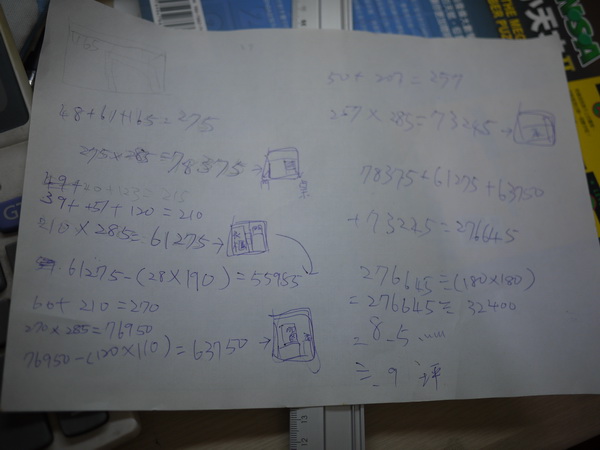 48+61+165=275
275×285=78375→
39+51+120=210
210×285=61275→
61275-(28×190)=55955
60+210=270
270×285=76950
76950-(120×110)=63750→
50+207=257
257×285=73245→
78375+61275+63750
+73245=276645
276645÷(180×180)
=276645÷32400
=8.5......
≒9坪